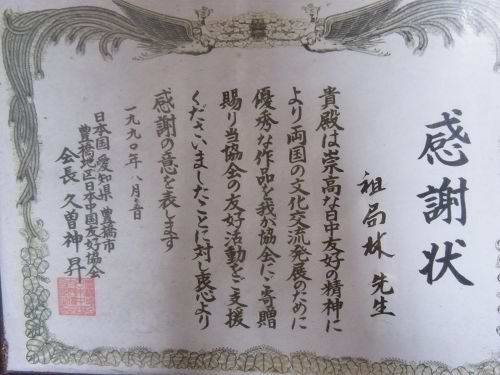 感謝状
祖局林 先生
貴殿は崇高な日中友好の精神に
より両国の文化交流発展のために
優秀な作品を我が協会にご寄贈
賜り当協会の友好活動をご支援
くださいましたことに対し衷心より
感謝の意を表します
一九九〇年八月
日本国愛知県豊橋市
豊橋地区日本中国友好協会
会長 久曽神昇